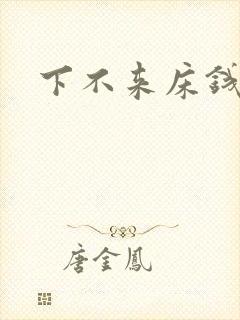 下不来床钱
唐金鳳